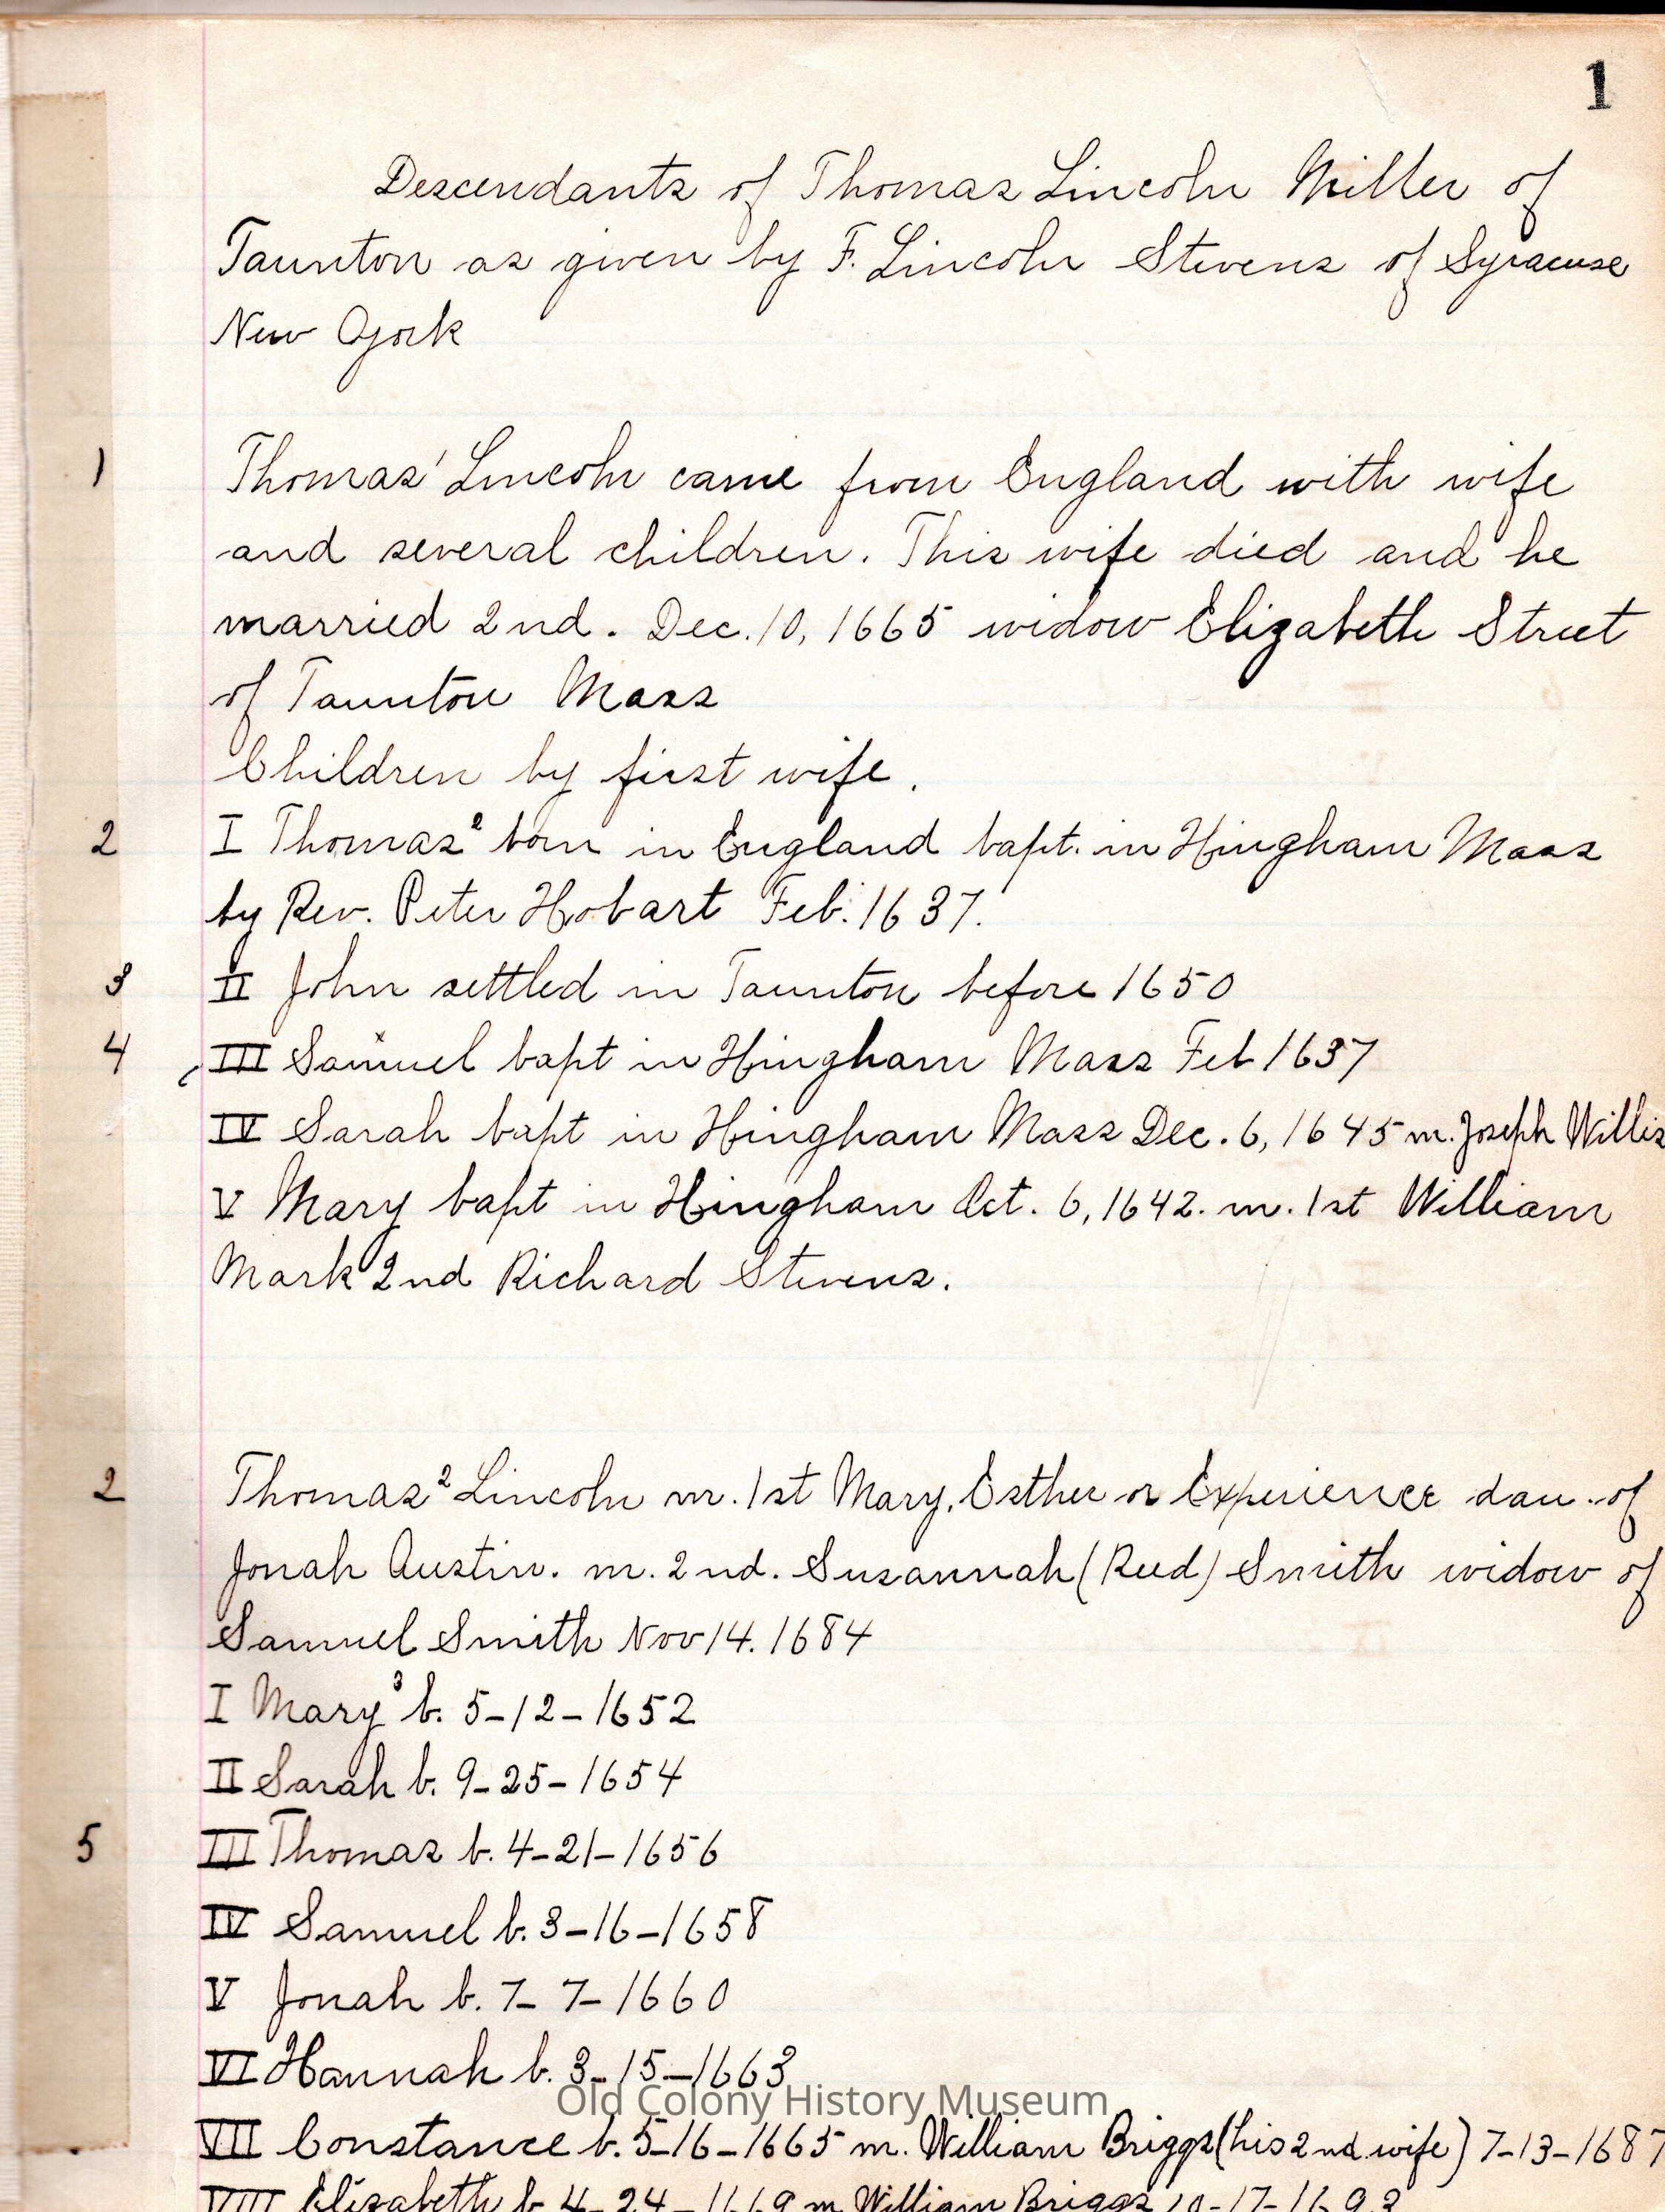 1
Descendants of Thomas Lincoln Miller of
Taunton as given by F. Lincoln Stevens of Syracuse
New York
1 Thomas¹ Lincoln came from England with wife
and several children. This wife died and he
married 2nd. Dec. 10, 1665 widow Elizabeth Street
of Taunton Mass
Children by first wife.
2 I Thomas² born in England bapt. in Hingham Mass
by Rev. Peter Hobart Feb. 1637.
3 II John settled in Taunton before 1650
4 III Samuel bapt in Hingham Mass Feb 1637
IV Sarah bapt in Hingham Mass Dec. 6, 1645 m. Joseph Willis
V Mary bapt in Hingham Oct. 6, 1642. m. 1st William
Mark 2nd Richard Stevens.
2 Thomas² Lincoln m. 1st Mary, Esther or Experience dau. of
Jonah Austin. m. 2nd. Susannah (Reed) Smith widow of
Samuel Smith Nov 14. 1684
I Mary³ b. 5-12-1652
II Sarah b. 9-25-1654
5 III Thomas b. 4-21-1656
IV Samuel b. 3-16-1658
V Jonah b. 7-7-1660
VI Hannah b. 3-15-1663
Old Colony History Museum
VII Constance b. 5-16-1665 m. William Briggs (his 2nd wife) 7-13-1687
VIII Elizabeth b. 4-24-1669 m. William Briggs 10-17-1693